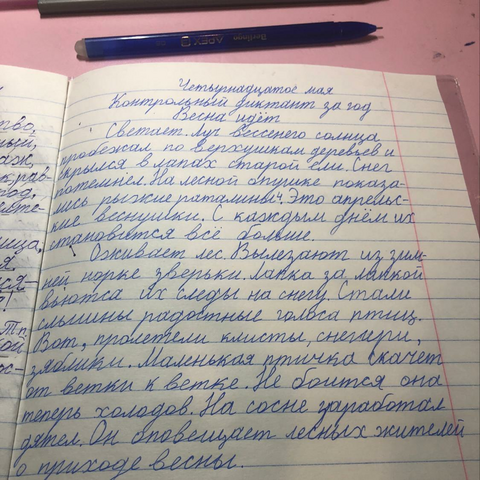 Berlingo APEX
Четырнадцатое мая
Контрольный диктант за год
Весна идёт
Светает. Луч весеннего солнца
пробежал по верхушкам деревьев и
скрылся в лапах старой ели. Снег
потемнел. На лесной опушке показа-
лись рыжие проталины. Это апрельс-
кие веснушки. С каждым днём их
становится всё больше.
Оживает лес. Вылезают из зим-
ней норке зверьки. Лапка за лапкой
вьются их следы на снегу. Стали
слышны радостные голоса птиц.
Вот, пролетели клисты, снегири,
зяблики. Маленькая птичка скачет
от ветки к ветке. Не боится она
теперь холодов. На сосне заработал
дятел. Он оповещает лесных жителей
о приходе весны.